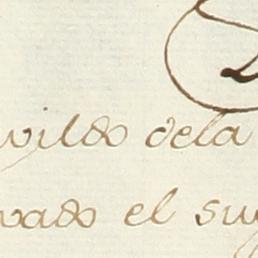 vildo dela
vado el sug